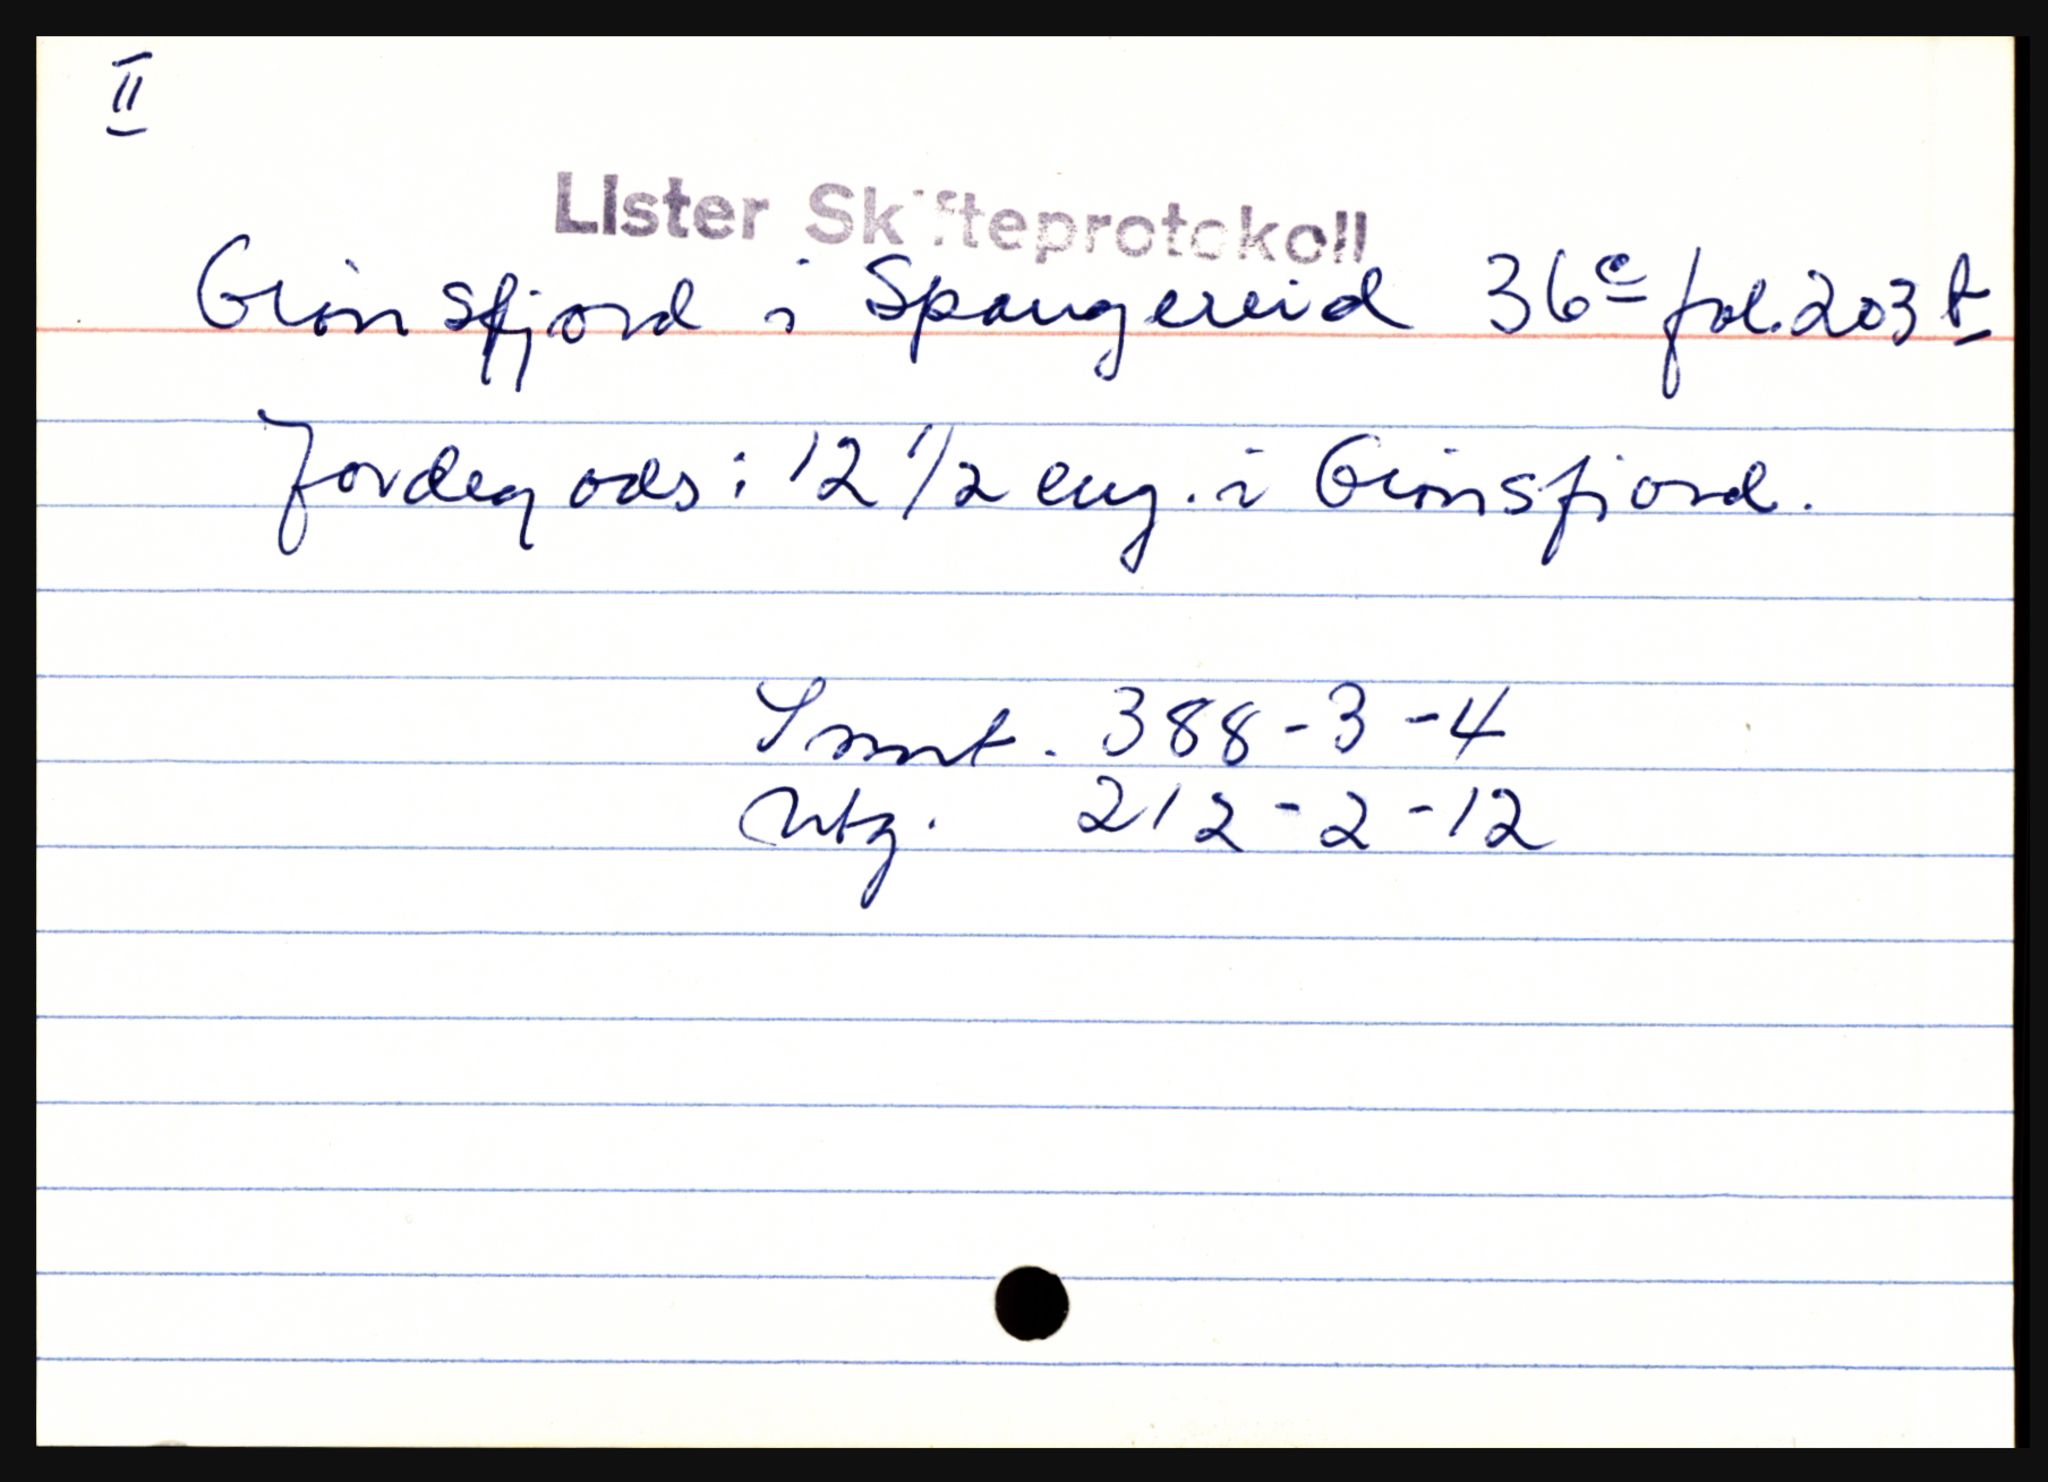 II
Lister Skifteprotokoll
Grønsfjord i Spangereid 36c fol. 203 b
Jordegods: 12 1/2 eng. i Grønsfjord.
Smt. 388-3-4
Utg. 212-2-12